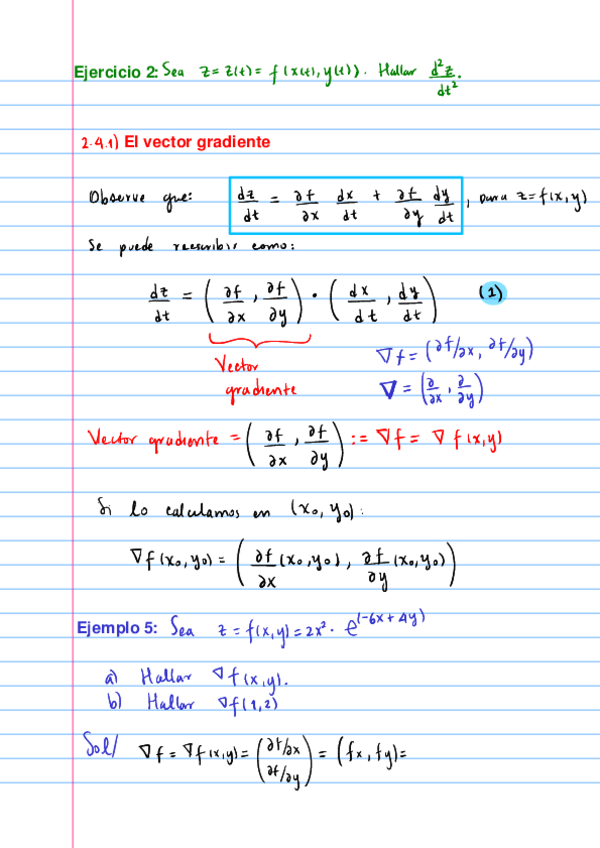 Ejercicio 2: Sea z = z(t) = f(x(t), y(t)). Hallar d²z/dt².
2.4.1) El vector gradiente
Observe que: dz/dt = ∂f/∂x dx/dt + ∂f/∂y dy/dt, para z = f(x,y)
Se puede reescribir como:
dz/dt = (∂f/∂x, ∂f/∂y) · (dx/dt, dy/dt) (1)
Vector
gradiente
∇f = (∂f/∂x, ∂f/∂y)
∇ = (∂/∂x, ∂/∂y)
Vector gradiente = (∂f/∂x, ∂f/∂y) := ∇f = ∇f(x,y)
Si lo calculamos en (x₀, y₀):
∇f(x₀,y₀) = (∂f/∂x (x₀,y₀), ∂f/∂y (x₀,y₀))
Ejemplo 5: Sea z = f(x,y) = 2x² · e^(-6x+4y)
a) Hallar ∇f(x,y).
b) Hallar ∇f(1,2)
Sol/ ∇f = ∇f(x,y) = (∂f/∂x ∂f/∂y) = (fx, fy) =